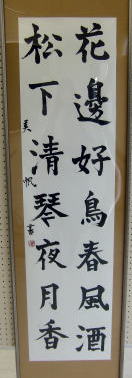 花邊好鳥春風酒
松下清琴夜月香
美帆書